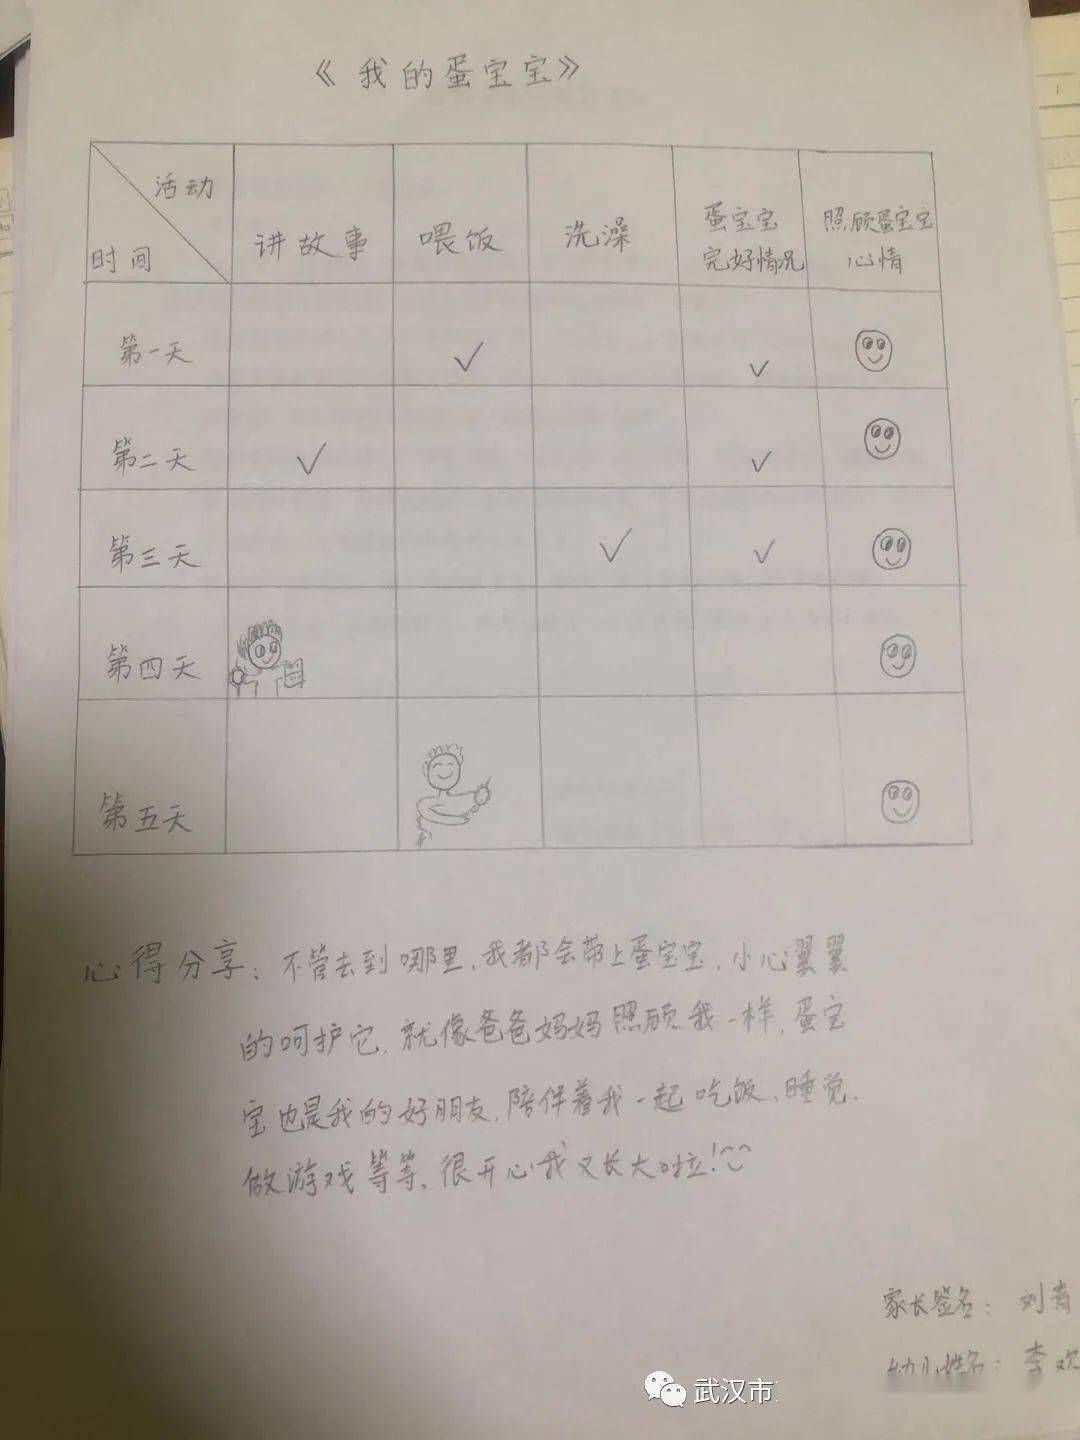 《我的蛋宝宝》
活动
时间
讲故事
喂饭
洗澡
蛋宝宝
完好情况
照顾蛋宝宝
心情
第一天 ✓ ✓
第二天 ✓ ✓
第三天 ✓ ✓
第四天
第五天
心得分享：不管去到哪里，我都会带上蛋宝宝，小心翼翼
的呵护它，就像爸爸妈妈照顾我一样，蛋宝
宝也是我的好朋友，陪伴着我一起吃饭、睡觉、
做游戏等等，很开心我又长大啦！
家长签名：刘青
幼儿姓名：李欢
武汉市